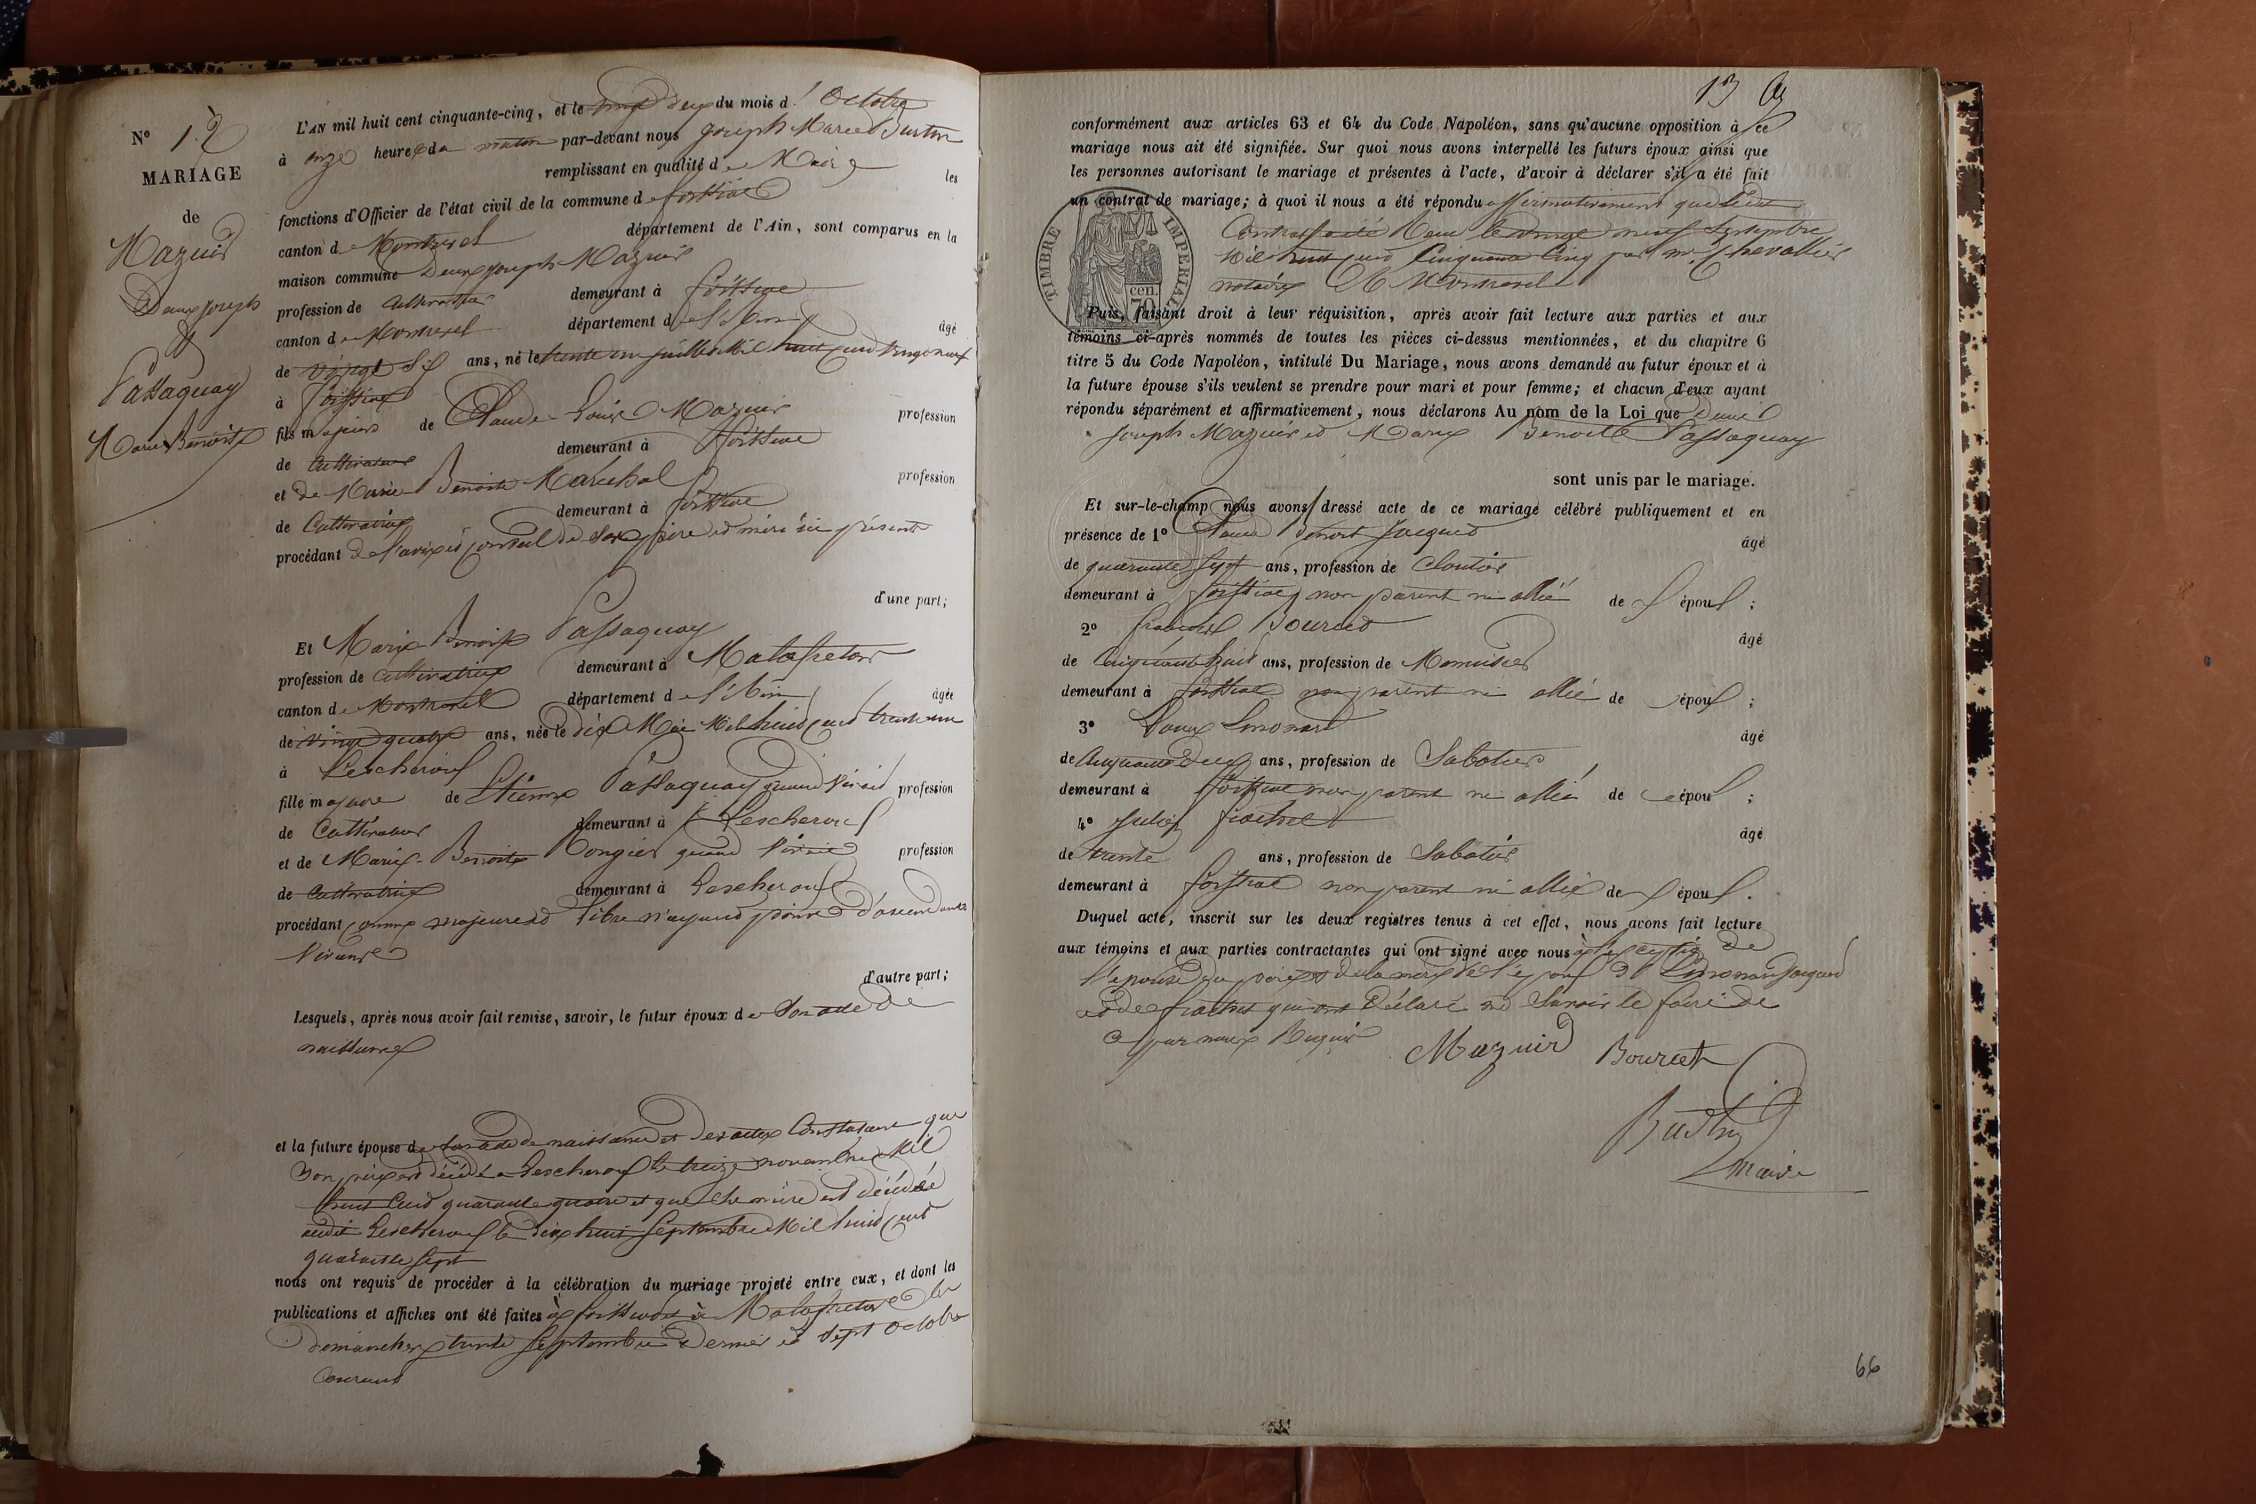 N° 12
MARIAGE
de
Mazuir
Denis Joseph
&
Passaquay
Marie Benoite
L'AN mil huit cent cinquante-cinq, et le vingt deux du mois d' Octobre
à onze heures du matin par-devant nous Joseph Marie Buston
remplissant en qualité de Maire les
fonctions d'Officier de l'état civil de la commune de foissiat
canton de Montrevel département de l'Ain, sont comparus en la
maison commune Denis Joseph Mazuir
profession de Cultivateur demeurant à foissiat
canton de Montrevel département de l'Ain âgé
de vingt six ans, né le trente un juillet Mil huit cent vingt neuf
à foissiat
fils majeur de Claude Louis Mazuir profession
de Cultivateur demeurant à foissiat
et de Marie Benoite Maréchal profession
de Cultivatrice demeurant à foissiat
procédant de l'avis et conseil de ses père et mère ici présents
d'une part;
Et Marie Benoite Passaquay
profession de cultivatrice demeurant à Malafretaz
canton de Montrevel département de l'Ain âgée
de vingt quatre ans, née le dix Mai Mil huit cent trente un
à Lescheroux
fille majeure de Etienne Passaquay quand vivait profession
de Cultivateur demeurant à Lescheroux
et de Marie Benoite Rongier quand vivait profession
de Cultivatrice demeurant à Lescheroux
procédant comme majeure et libre n'ayant point d'ascendants
vivants
d'autre part;
Lesquels, après nous avoir fait remise, savoir, le futur époux de son acte de
naissance
et la future épouse de son acte de naissance et des actes Constatant que
son père est décédé à Lescheroux le treize novembre Mil
huit Cent quarante quatre et que the mère est décédée
audit Lescheroux le dix huit Septembre Mil huit cent
quarante sept
nous ont requis de procéder à la célébration du mariage projeté entre eux, et dont les
publications et affiches ont été faites à foissiat et à Malafretaz les
dimanches trente Septembre dernier et sept octobre
Courant
13
conformément aux articles 63 et 64 du Code Napoléon, sans qu'aucune opposition à ce
mariage nous ait été signifiée. Sur quoi nous avons interpellé les futurs époux ainsi que
les personnes autorisant le mariage et présentes à l'acte, d'avoir à déclarer s'il a été fait
un contrat de mariage; à quoi il nous a été répondu affirmativement que ledit
Contrat a été Reçu le neuf Septembre
Mil huit cent Cinquante Cinq par Me Chevallier
notaire à Montrevel
TIMBRE IMPERIAL
70 cen.
Puis, faisant droit à leur réquisition, après avoir fait lecture aux parties et aux
témoins ci-après nommés de toutes les pièces ci-dessus mentionnées, et du chapitre 6
titre 5 du Code Napoléon, intitulé Du Mariage, nous avons demandé au futur époux et à
la future épouse s'ils veulent se prendre pour mari et pour femme; et chacun d'eux ayant
répondu séparément et affirmativement, nous déclarons Au nom de la Loi que Denis
Joseph Mazuir et Marie Benoite Passaquay
sont unis par le mariage.
Et sur-le-champ nous avons dressé acte de ce mariage célébré publiquement et en
présence de 1° Claude Benoit Jacquet âgé
de quarante sept ans, profession de Cloutier
demeurant à foissiat, non parent ni allié de l'époux ;
2° françois Bourcet âgé
de Cinquante huit ans, profession de Menuisier
demeurant à foissiat non parent ni allié de l'époux ;
3° Louis âgé
de Cinquante deux ans, profession de Sabotier
demeurant à foissiat non parent ni allié de l'époux ;
4° âgé
de trente ans, profession de Sabotier
demeurant à foissiat non parent ni allié de l'époux .
Duquel acte, inscrit sur les deux registres tenus à cet effet, nous avons fait lecture
aux témoins et aux parties contractantes qui ont signé avec nous à l'exception de
l'épouse du père et de la mère de l'époux
et de qui ont déclaré ne savoir le faire de
ce par nous Requis
Mazuir Bourcet
Buston
maire
66